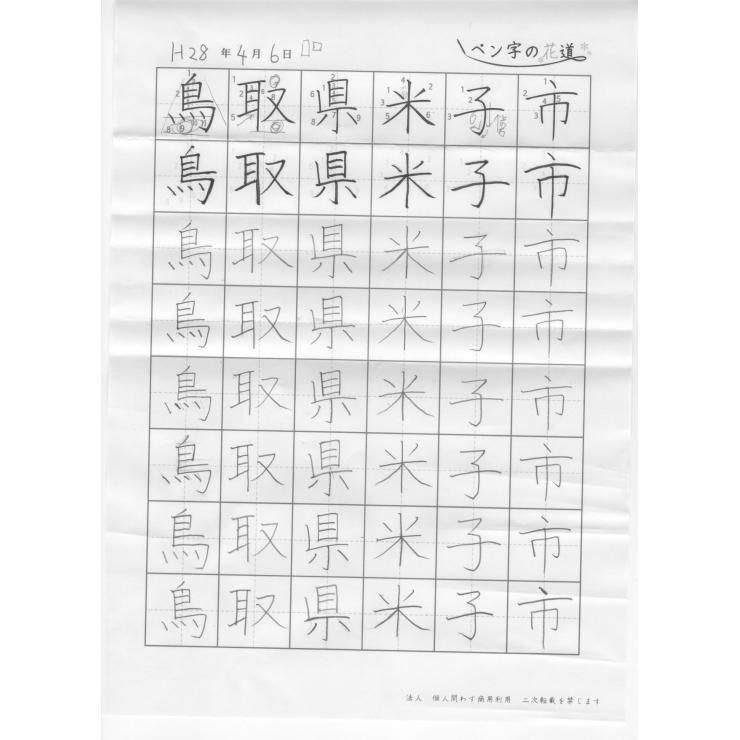 H28年4月6日
ペン字の花道
鳥取県米子市
鳥取県米子市
鳥取県米子市
鳥取県米子市
鳥取県米子市
鳥取県米子市
鳥取県米子市
鳥取県米子市
法人 個人問わず商用利用 二次転載を禁じます